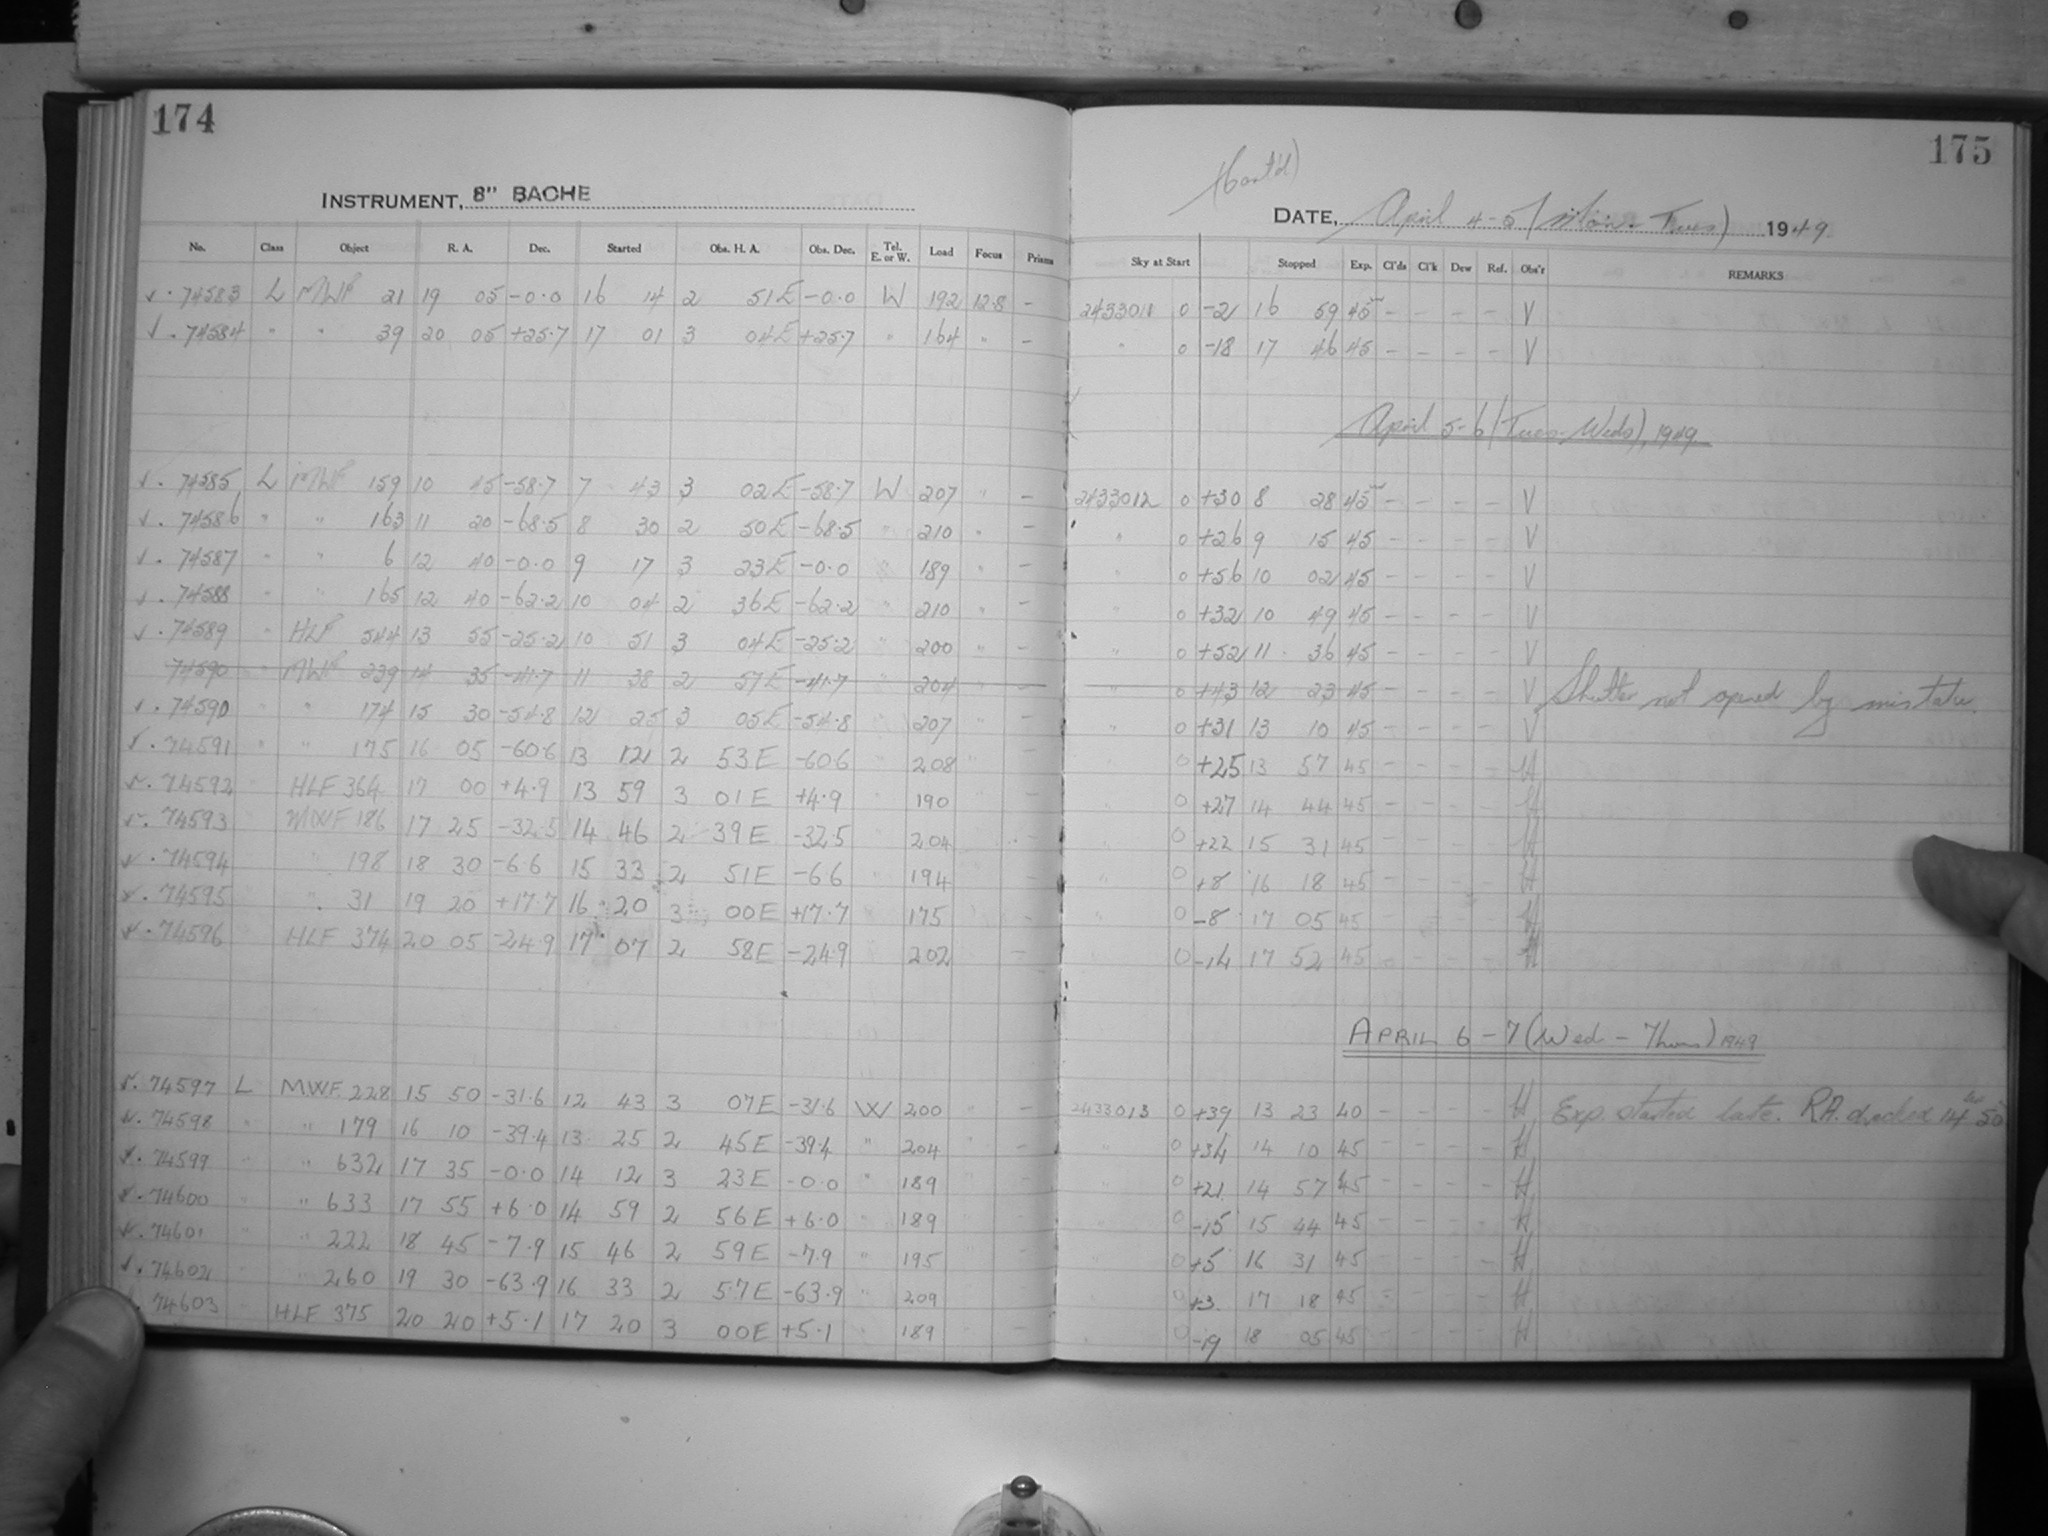 174
175
(Cont'd)
INSTRUMENT, 8" BACHE
DATE, April 4-5 (Mon - Tues) 1949
No. Class Object R. A. Dec. Started Obs. H. A. Obs. Dec. Tel. E. or W. Load Focus Prisms Sky at Start Stopped Exp. Cl'ds Cl'k Dew Ref. Obs'r REMARKS
√. 74583 L MWF 21 19 05 -0.0 16 14 2 51E -0.0 W 192 12.8 - 2433011 0 -2 16 59 45 - - - - V
√. 74584 " " 39 20 05 +25.7 17 01 3 04E +25.7 " 164 " - " 0 -18 17 46 45 - - - - V
April 5-6 (Tues-Weds), 1949
√. 74585 L MWF 159 10 45 -58.7 7 43 3 02E -58.7 W 207 " - 2433012 0 +30 8 28 45 - - - - V
√. 74586 " " 163 11 20 -68.5 8 30 2 50E -68.5 " 210 " - " 0 +26 9 15 45 - - - - V
√. 74587 " " 6 12 40 -0.0 9 17 3 23E -0.0 " 189 " - " 0 +56 10 02 45 - - - - V
√. 74588 " " 165 12 40 -62.2 10 04 2 36E -62.2 " 210 " - " 0 +32 10 49 45 - - - - V
√. 74589 " HLF 544 13 55 -25.2 10 51 3 04E -25.2 " 200 " - " 0 +52 11 36 45 - - - - V
74590 " MWF 239 14 35 -41.7 11 38 2 57E -41.7 " 204 " - " 0 +43 12 23 45 - - - - V Shutter not opened by mistake.
√. 74590 " " 174 15 30 -54.8 12 25 3 05E -54.8 " 207 " - " 0 +31 13 10 45 - - - - V
√. 74591 " " 175 16 05 -60.6 13 12 2 53E -60.6 " 208 " - " 0 +25 13 57 45 - - - - H
√. 74592 HLF 364 17 00 +4.9 13 59 3 01E +4.9 " 190 - " 0 +27 14 44 45 - - - - H
√. 74593 MWF 186 17 25 -32.5 14 46 2 39E -32.5 " 204 " - " 0 +22 15 31 45 - - - - H
√. 74594 " 198 18 30 -6.6 15 33 2 51E -6.6 " 194 - " 0 +8 16 18 45 - - - - H
√. 74595 " 31 19 20 +17.7 16 20 3 00E +17.7 " 175 - " 0 -8 17 05 45 - - - H
√. 74596 HLF 374 20 05 -24.9 17 07 2 58E -24.9 202 - 0 -14 17 52 45 - - - - H
APRIL 6-7 (Wed - Thurs) 1949
√. 74597 L MWF 228 15 50 -31.6 12 43 3 07E -31.6 W 200 " - 2433013 0 +39 13 23 40 - - - - H Exp. started late. RA. checked 14 50
√. 74598 " " 179 16 10 -39.4 13 25 2 45E -39.4 " 204 " - " 0 +34 14 10 45 - - - - H
√. 74599 " " 632 17 35 -0.0 14 12 3 23E -0.0 " 189 " - " 0 +21 14 57 45 - - - - H
√. 74600 " " 633 17 55 +6.0 14 59 2 56E +6.0 " 189 " - " 0 -15 15 44 45 - - - - H
√. 74601 " " 222 18 45 -7.9 15 46 2 59E -7.9 " 195 " - " 0 +5 16 31 45 - - - - H
√. 74602 " " 260 19 30 -63.9 16 33 2 57E -63.9 " 209 " - " 0 +3 17 18 45 - - - - H
√. 74603 " HLF 375 20 20 +5.1 17 20 3 00E +5.1 " 189 " - " 0 -19 18 05 45 - - - - H